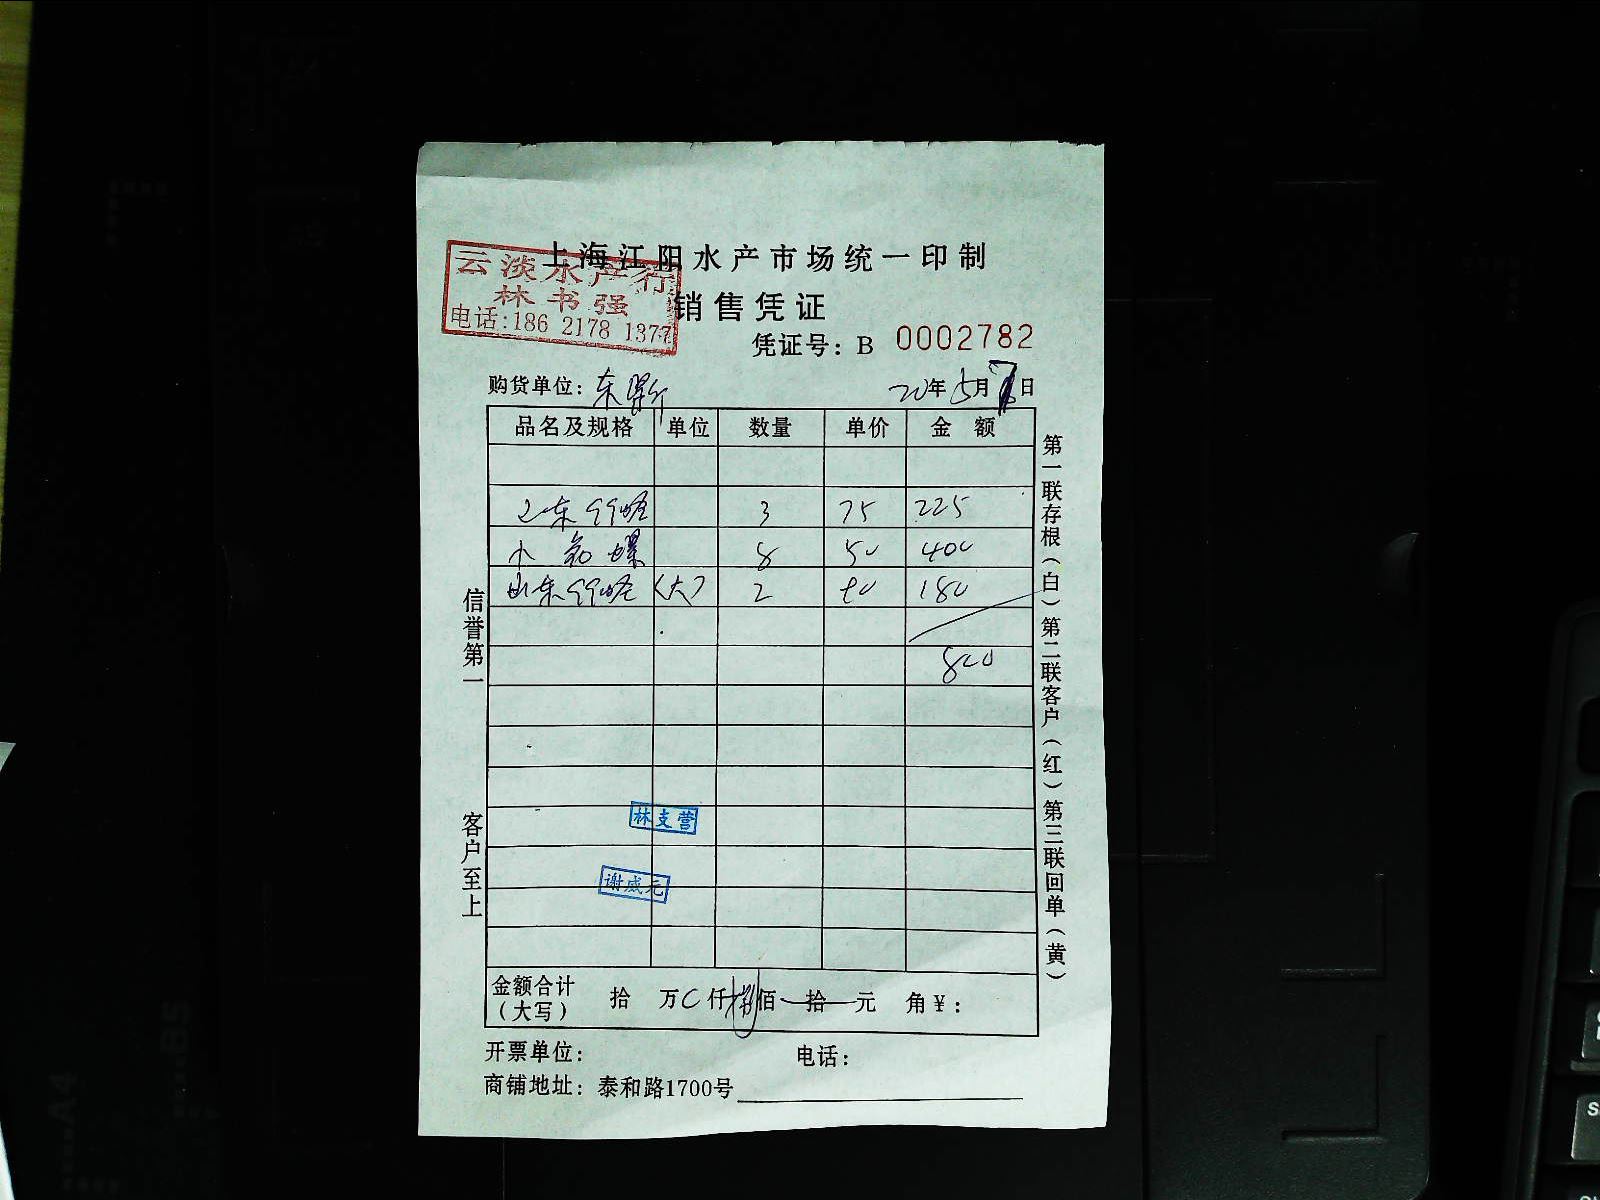 上海江阳水产市场统一印制
云淡水产行
林书强
电话:186 2178 1377
销售凭证
凭证号: B 0002782
购货单位: 东 20年5月7日
品名及规格 单位 数量 单价 金额
3 75 225
小 螺 8 50 400
山东 (大) 2 90 180
800
林支营
谢成元
金额合计(大写) 拾 万 仟捌佰 拾 元 角 ¥:
开票单位: 电话:
商铺地址: 泰和路1700号
信誉第一 客户至上
第一联存根(白)第二联客户(红)第三联回单(黄)